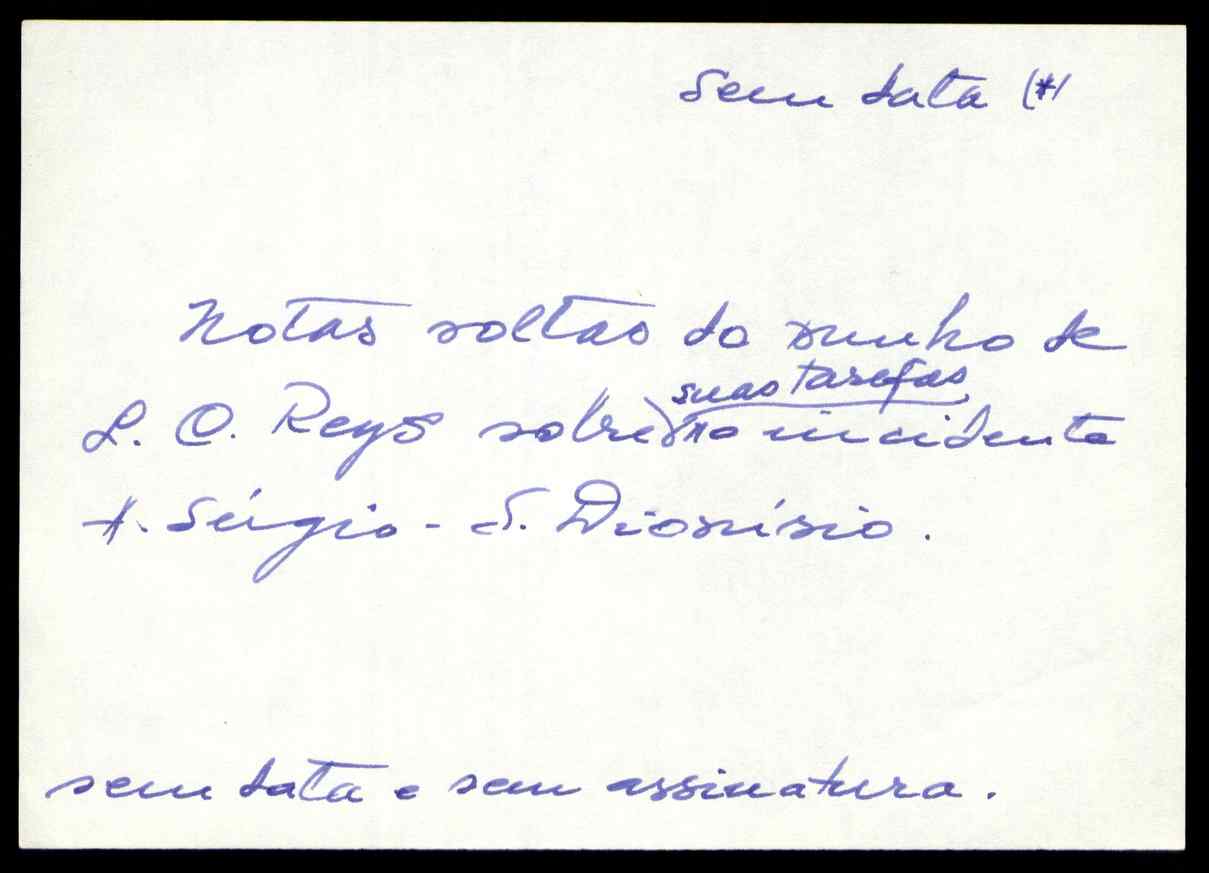 Sem data (*)
Notas soltas do punho de
suas tarefas
L. C. Reys sobre no incidente
A. Sérgio - S. Dionísio.
sem data e sem assinatura.